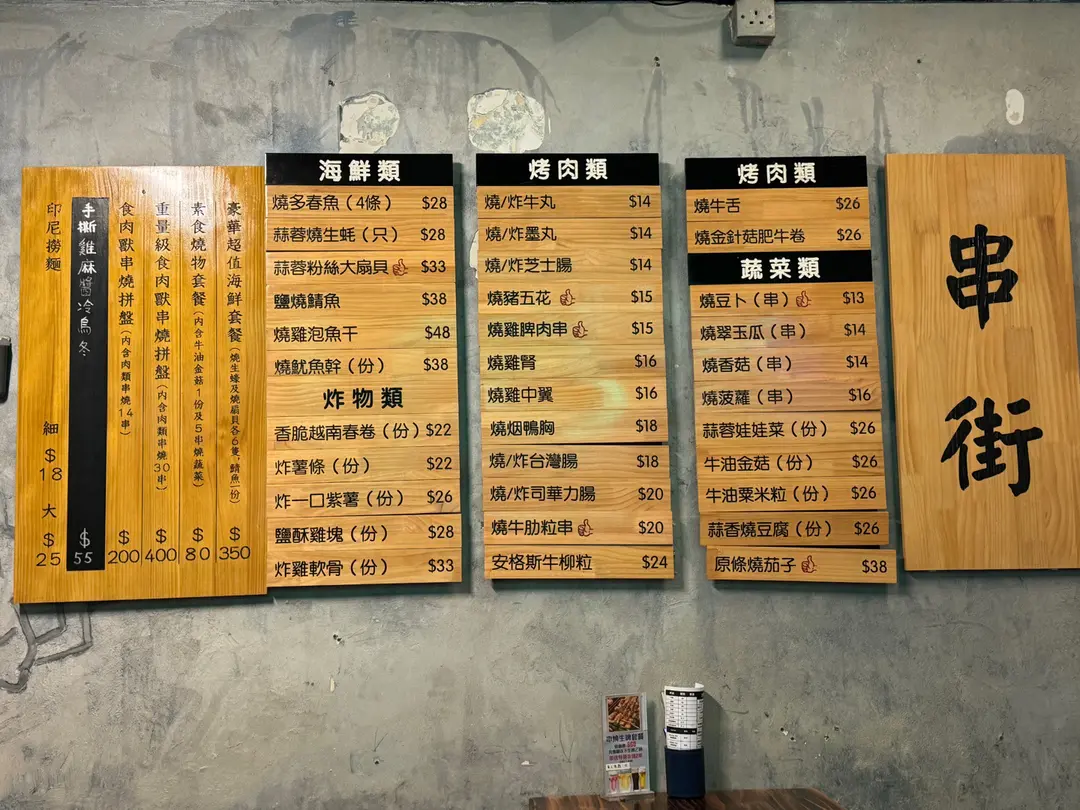 豪華超值海鮮套餐（燒生蠔及燒扇貝各6隻，鯖魚一份） $350
素食燒物套餐（內含牛油金菇1份及5串燒蔬菜） $80
重量級食肉獸串燒拼盤（內含肉類串燒30串） $400
食肉獸串燒拼盤（內含肉類串燒14串） $200
手撕雞麻醬冷烏冬 $55
印尼撈麵 細$18 大$25
海鮮類
燒多春魚（4條） $28
蒜蓉燒生蚝（只） $28
蒜蓉粉絲大扇貝 $33
鹽燒鯖魚 $38
燒雞泡魚干 $48
燒魷魚幹（份） $38
炸物類
香脆越南春卷（份） $22
炸薯條（份） $22
炸一口紫薯（份） $26
鹽酥雞塊（份） $28
炸雞軟骨（份） $33
烤肉類
燒/炸牛丸 $14
燒/炸墨丸 $14
燒/炸芝士腸 $14
燒豬五花 $15
燒雞脾肉串 $15
燒雞腎 $16
燒雞中翼 $16
燒烟鴨胸 $18
燒/炸台灣腸 $18
燒/炸司華力腸 $20
燒牛肋粒串 $20
安格斯牛柳粒 $24
烤肉類
燒牛舌 $26
燒金針菇肥牛卷 $26
蔬菜類
燒豆卜（串） $13
燒翠玉瓜（串） $14
燒香菇（串） $14
燒菠蘿（串） $16
蒜蓉娃娃菜（份） $26
牛油金菇（份） $26
牛油粟米粒（份） $26
蒜香燒豆腐（份） $26
原條燒茄子 $38
串街